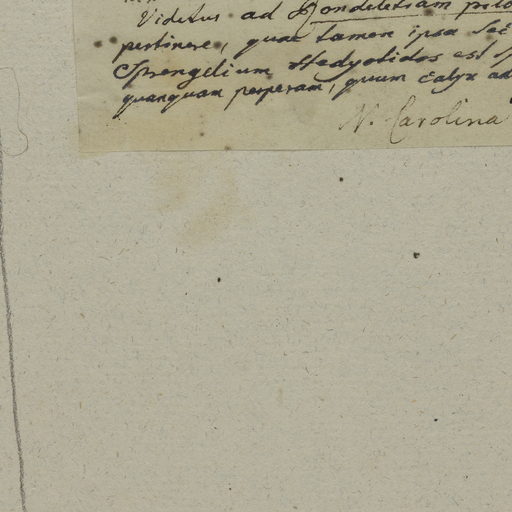 Videtur ad Rondeletiam pilo
pertinere, quae tamen ipsa sec
Sprengelium Hedyotidos est sp
quanquam perperam, quum Calyx ad
N. Carolina